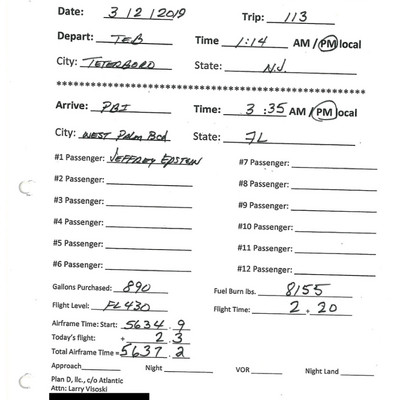 Date: 3/2/2019 Trip: 113
Depart: TEB Time 1:14 AM / PM local
City: TETERBORO State: N.J.
************************************************************
Arrive: PBI Time: 3:35 AM / PM local
City: WEST Palm Bch State: FL
#1 Passenger: JEFFREY EPSTEIN #7 Passenger:
#2 Passenger: #8 Passenger:
#3 Passenger: #9 Passenger:
#4 Passenger: #10 Passenger:
#5 Passenger: #11 Passenger:
#6 Passenger: #12 Passenger:
Gallons Purchased: 890 Fuel Burn lbs. 8155
Flight Level: FL430 Flight Time: 2.20
Airframe Time: Start: 5634.9
Today's flight: + 2.3
Total Airframe Time = 5637.2
Approach Night VOR Night Land
Plan D, llc, c/o Atlantic
Attn: Larry Visoski